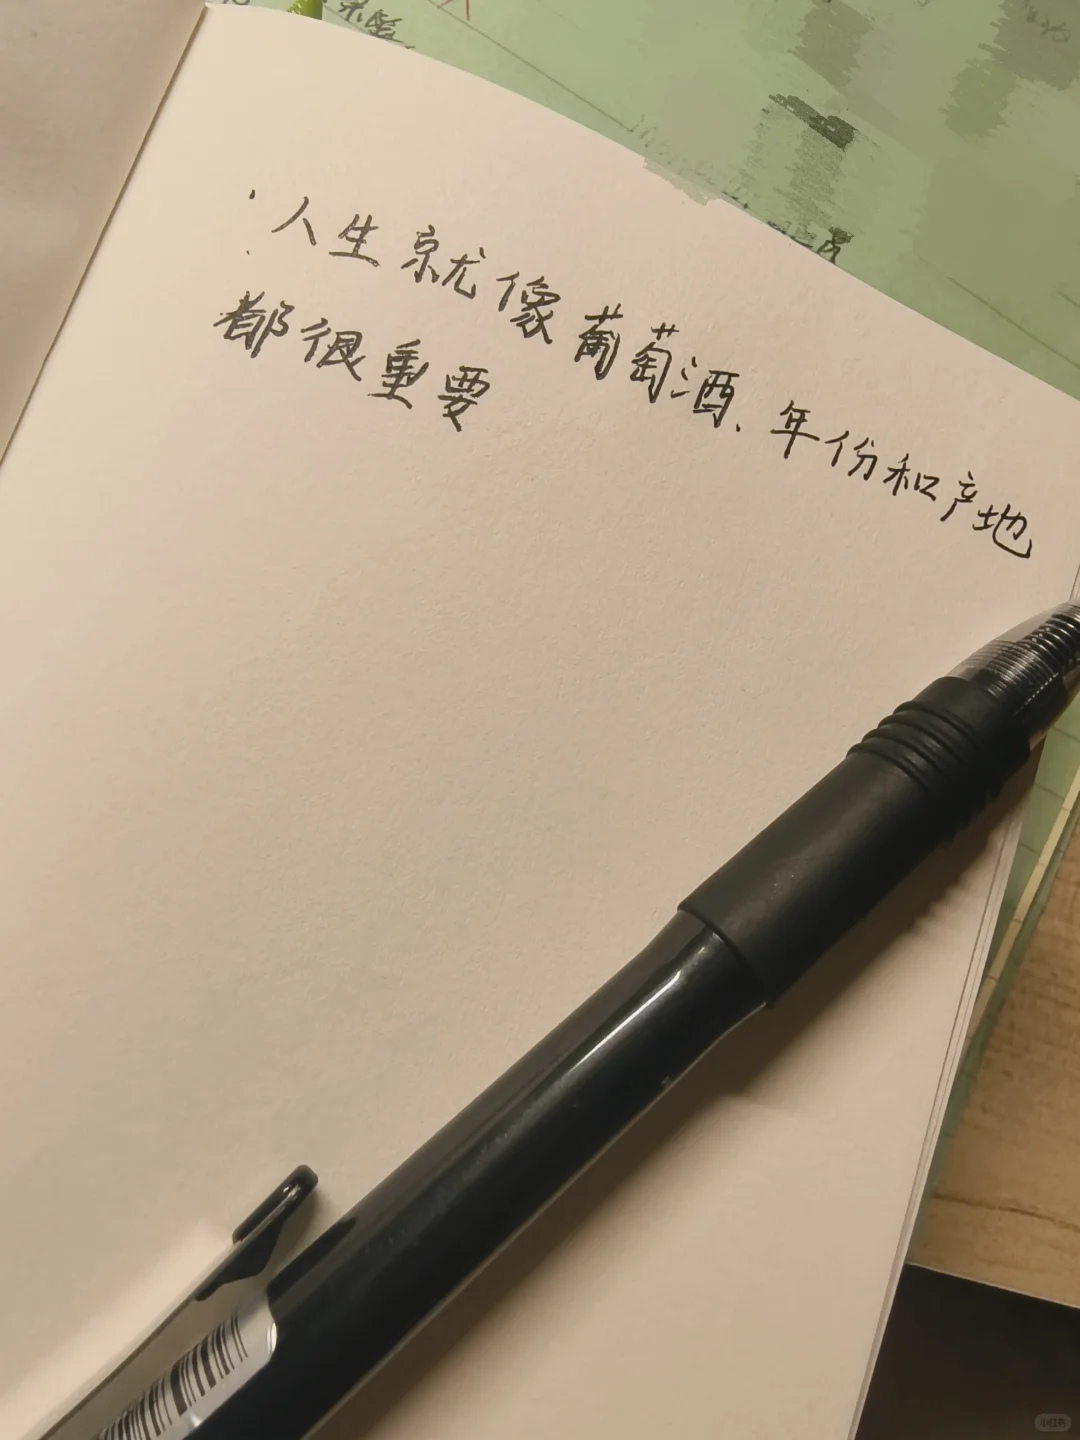 人生就像葡萄酒、年份和产地
都很重要
小红书